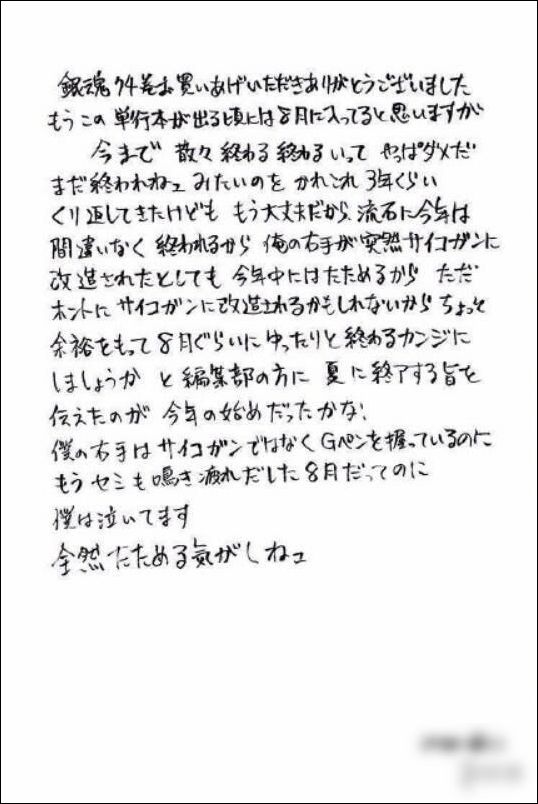 銀魂74巻お買いあげいただきありがとうございました
もうこの単行本が出る頃には8月に入ってると思いますが
今まで 散々終わる終わるいって やっぱダメだ
まだ終われねェ みたいのを かれこれ3年くらい
くり返してきたけども もう大丈夫だから 流石に今年は
間違いなく 終われるから 俺の右手が突然サイコガンに
改造されたとしても 今年中にはたためるから ただ
ホントに サイコガンに改造されるかもしれないから ちょっと
余裕をもって 8月ぐらいに ゆったりと終わるカンジに
しましょうか と 編集部の方に 夏に終了する旨を
伝えたのが 今年の始めだったかな
僕の右手はサイコガンではなく Gペンを握っているのに
もう セミも鳴き疲れだした 8月だってのに
僕は泣いてます
全然 たためる気がしねェ